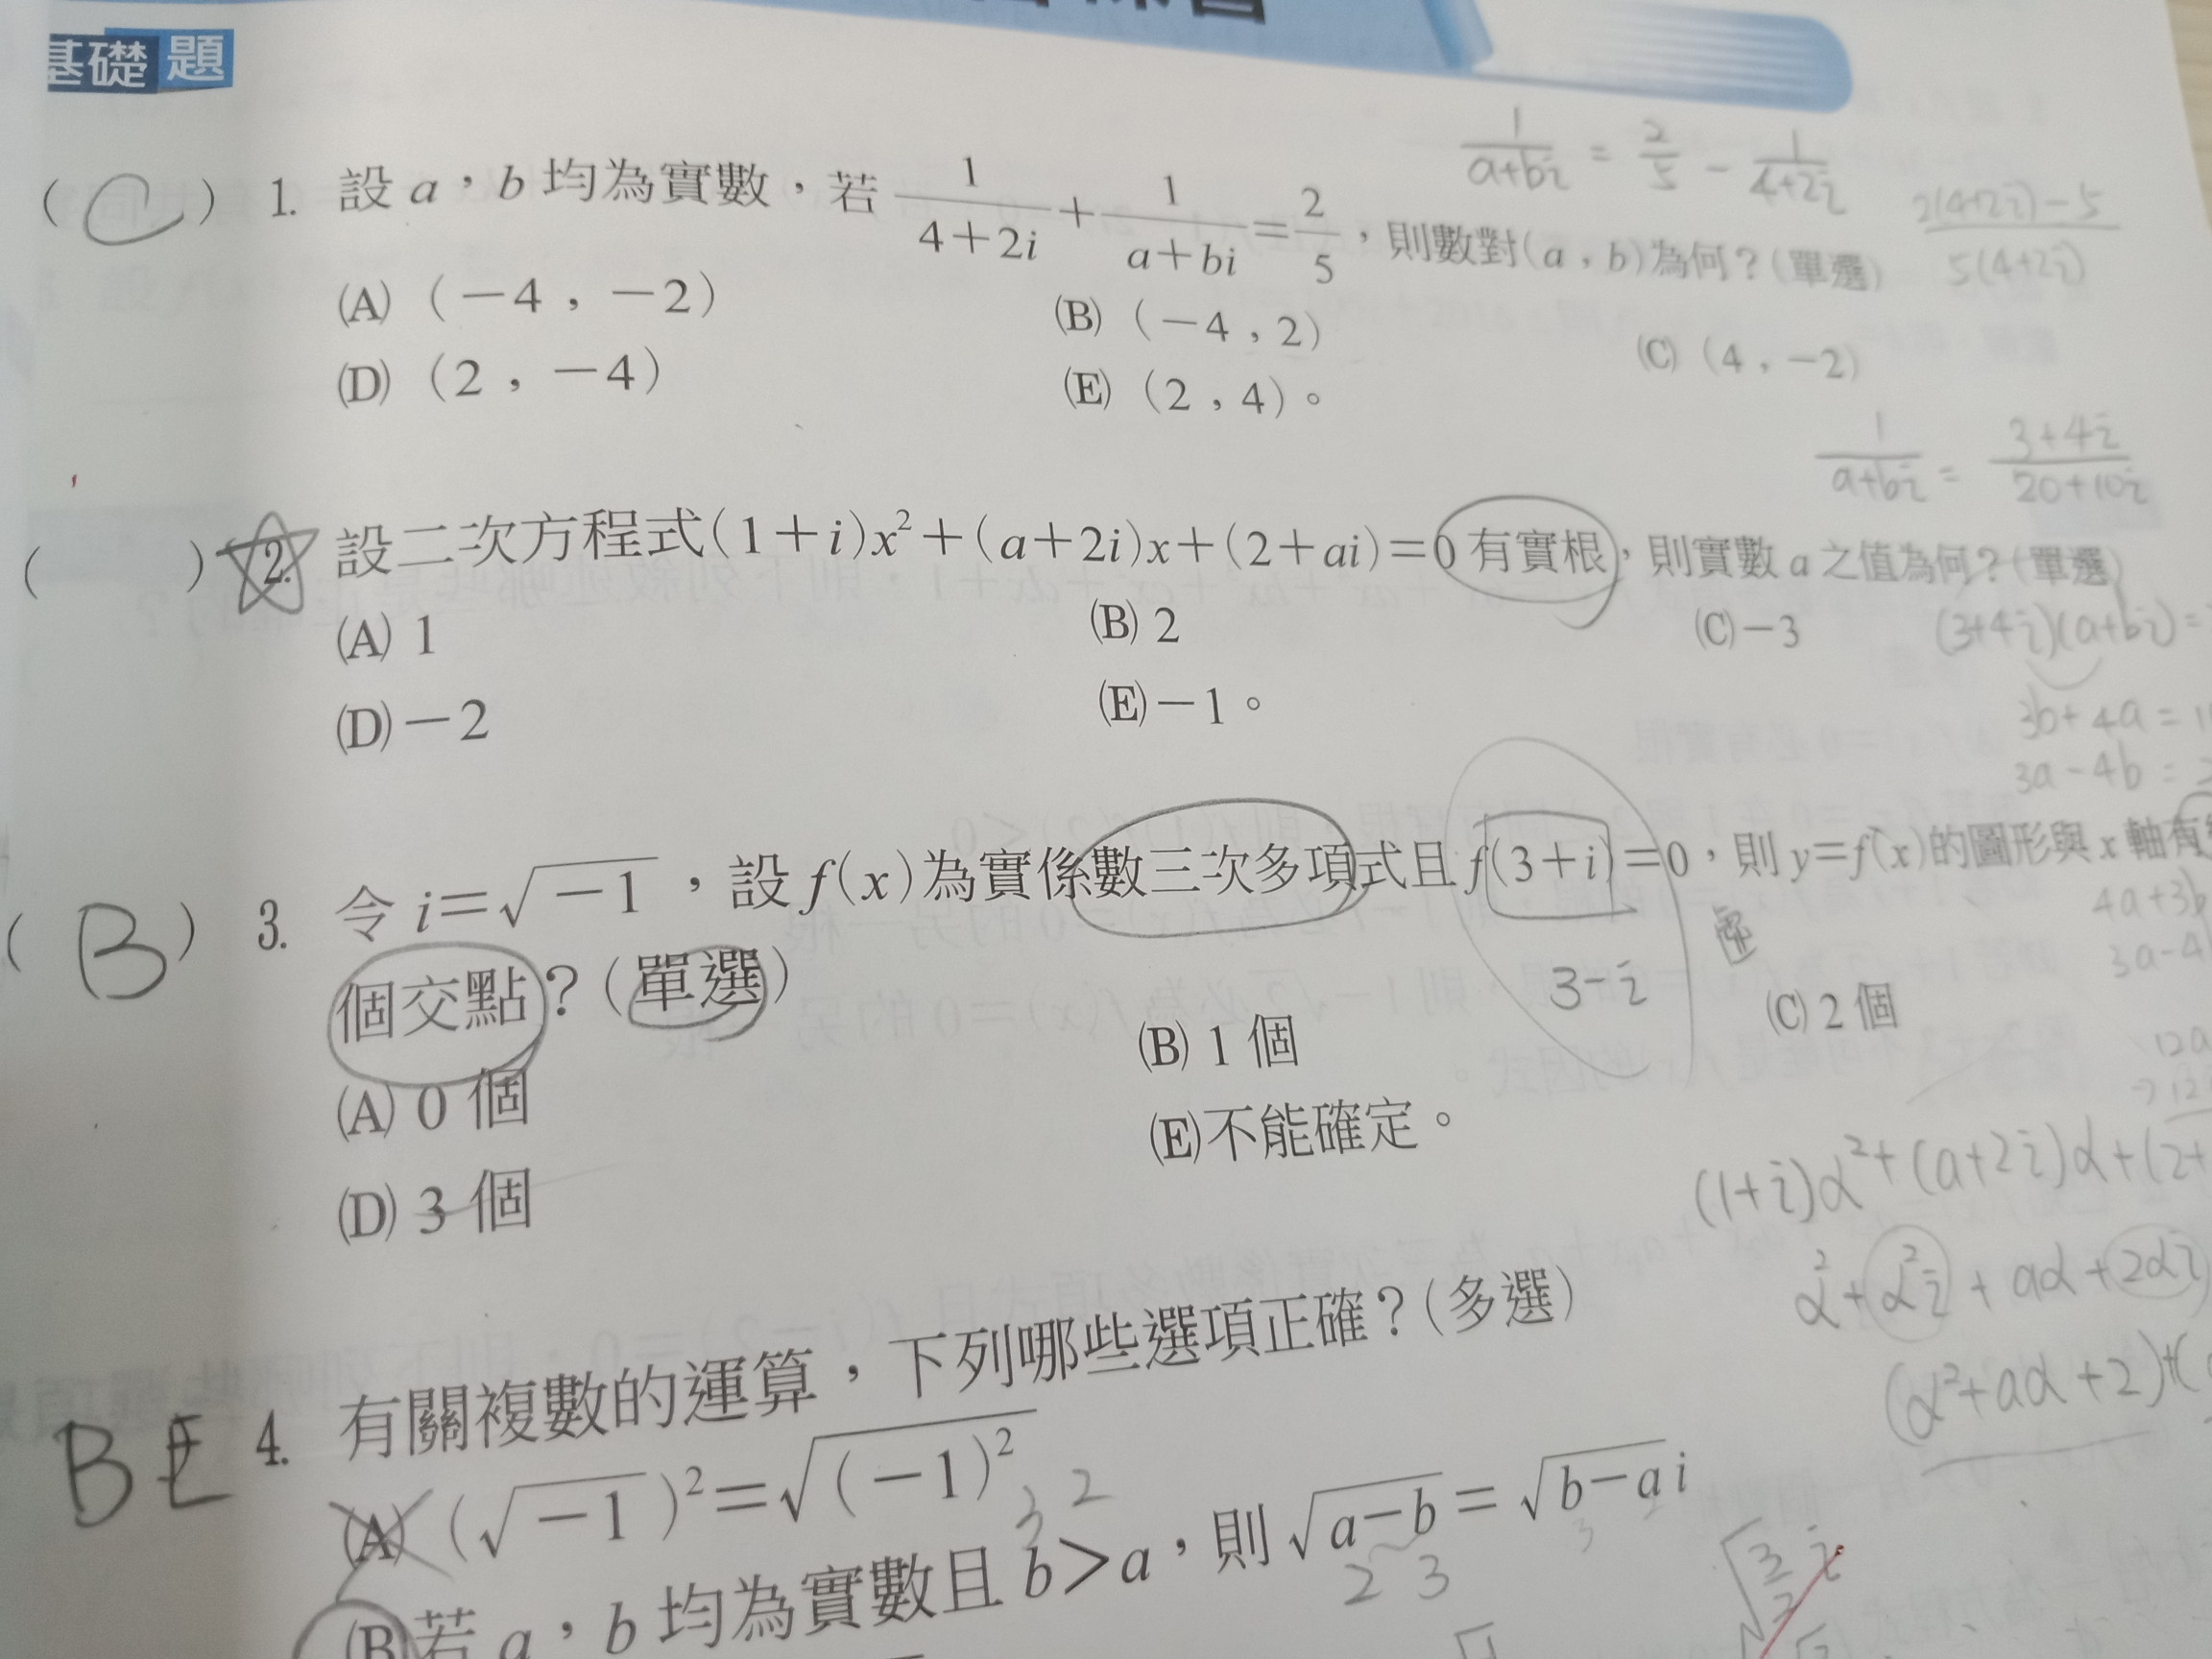 基礎題
(C) 1. 設 a，b 均為實數，若 \frac{1}{4+2i}+\frac{1}{a+bi}=\frac{2}{5}，則數對(a，b)為何？(單選)
\frac{1}{a+bi} = \frac{2}{5} - \frac{1}{4+2i}
\frac{2(4+2i)-5}{5(4+2i)}
(A) (-4，-2) (B) (-4，2) (C) (4，-2)
(D) (2，-4) (E) (2，4)。
\frac{1}{a+bi} = \frac{3+4i}{20+10i}
( ) 2. 設二次方程式(1+i)x²+(a+2i)x+(2+ai)=0 有實根，則實數 a 之值為何？(單選)
(A) 1 (B) 2 (C) -3
(3+4i)(a+bi) =
(D) -2 (E) -1。
3b+4a = 1
3a-4b = 2
(B) 3. 令 i=√-1，設 f(x)為實係數三次多項式且 f(3+i)=0，則 y=f(x)的圖形與 x 軸有
個交點？(單選)
3-i
4a+3b
3a-4
(A) 0 個 (B) 1 個 (C) 2 個
(D) 3 個 (E)不能確定。
12a
→12
(1+i)α²+(a+2i)α+(2+
α²+α²i+aα+2αi
(α²+aα+2)+(
BE 4. 有關複數的運算，下列哪些選項正確？(多選)
(A) (√-1)²=√(-1)²
3 2
(B)若 a，b 均為實數且 b>a，則 √a-b = √b-a i
2 3
3